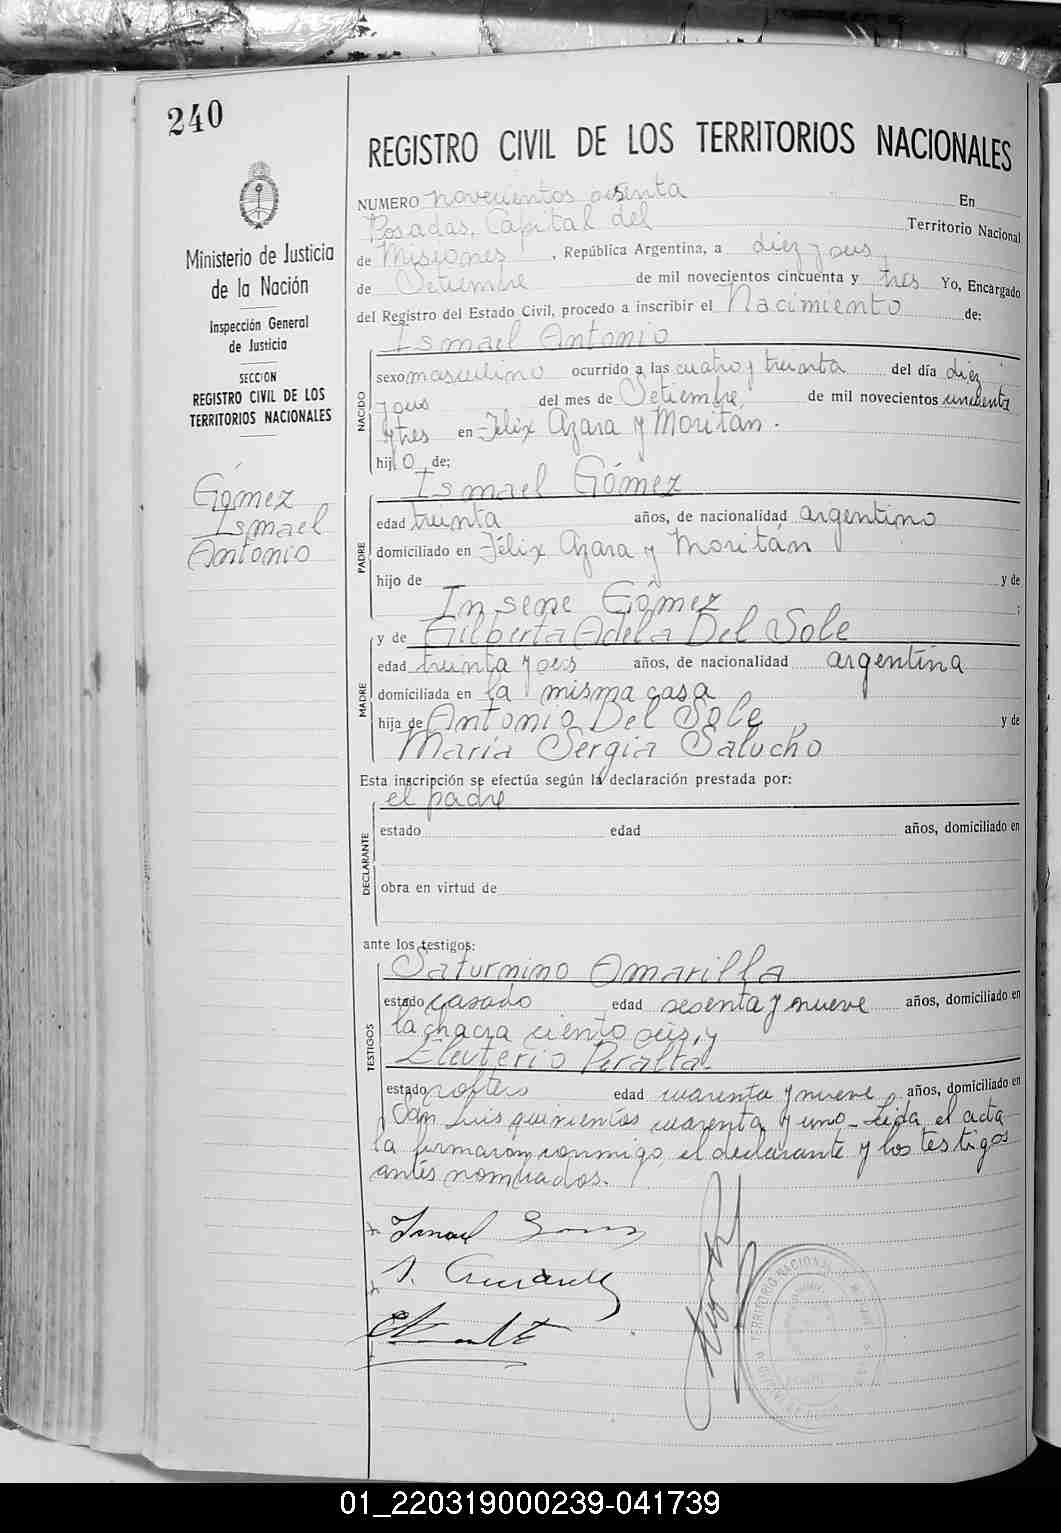 240
REGISTRO CIVIL DE LOS TERRITORIOS NACIONALES
Ministerio de Justicia
de la Nación
Inspección General
de Justicia
SECCION
REGISTRO CIVIL DE LOS
TERRITORIOS NACIONALES
Gómez
Ismael
Antonio
NUMERO novecientos En
Posadas, Capital del Territorio Nacional
de Misiones, República Argentina, a diez y seis
de Setiembre de mil novecientos cincuenta y tres Yo, Encargado
del Registro del Estado Civil, procedo a inscribir el Nacimiento de:
Ismael Antonio
NACIDO
sexo masculino ocurrido a las cuatro y treinta del día diez
y seis del mes de Setiembre de mil novecientos cincuenta
y tres en Félix Azara y Moritán.
hijo de;
Ismael Gómez
PADRE
edad treinta años, de nacionalidad argentino
domiciliado en Félix Azara y Moritán
hijo de y de
Insene Gómez ;
y de Gilberta Adela Del Sole
MADRE
edad treinta y seis años, de nacionalidad argentina
domiciliada en la misma casa
hija de Antonio Del Sole y de
María Sergia Salucho
Esta inscripción se efectúa según la declaración prestada por:
el padre
DECLARANTE
estado edad años, domiciliado en
obra en virtud de
ante los testigos:
Saturnino Amarilla
TESTIGOS
estado casado edad sesenta y nueve años, domiciliado en
la chacra ciento seis, y
Eleuterio Peralta
estado soltero edad cuarenta y nueve, años, domiciliado en
San Luis quinientos cuarenta y uno - Leída el acta
la firmaron conmigo el declarante y los testigos
antes nombrados.
Ismael
TERRITORIO NACIONAL DE
01_220319000239-041739